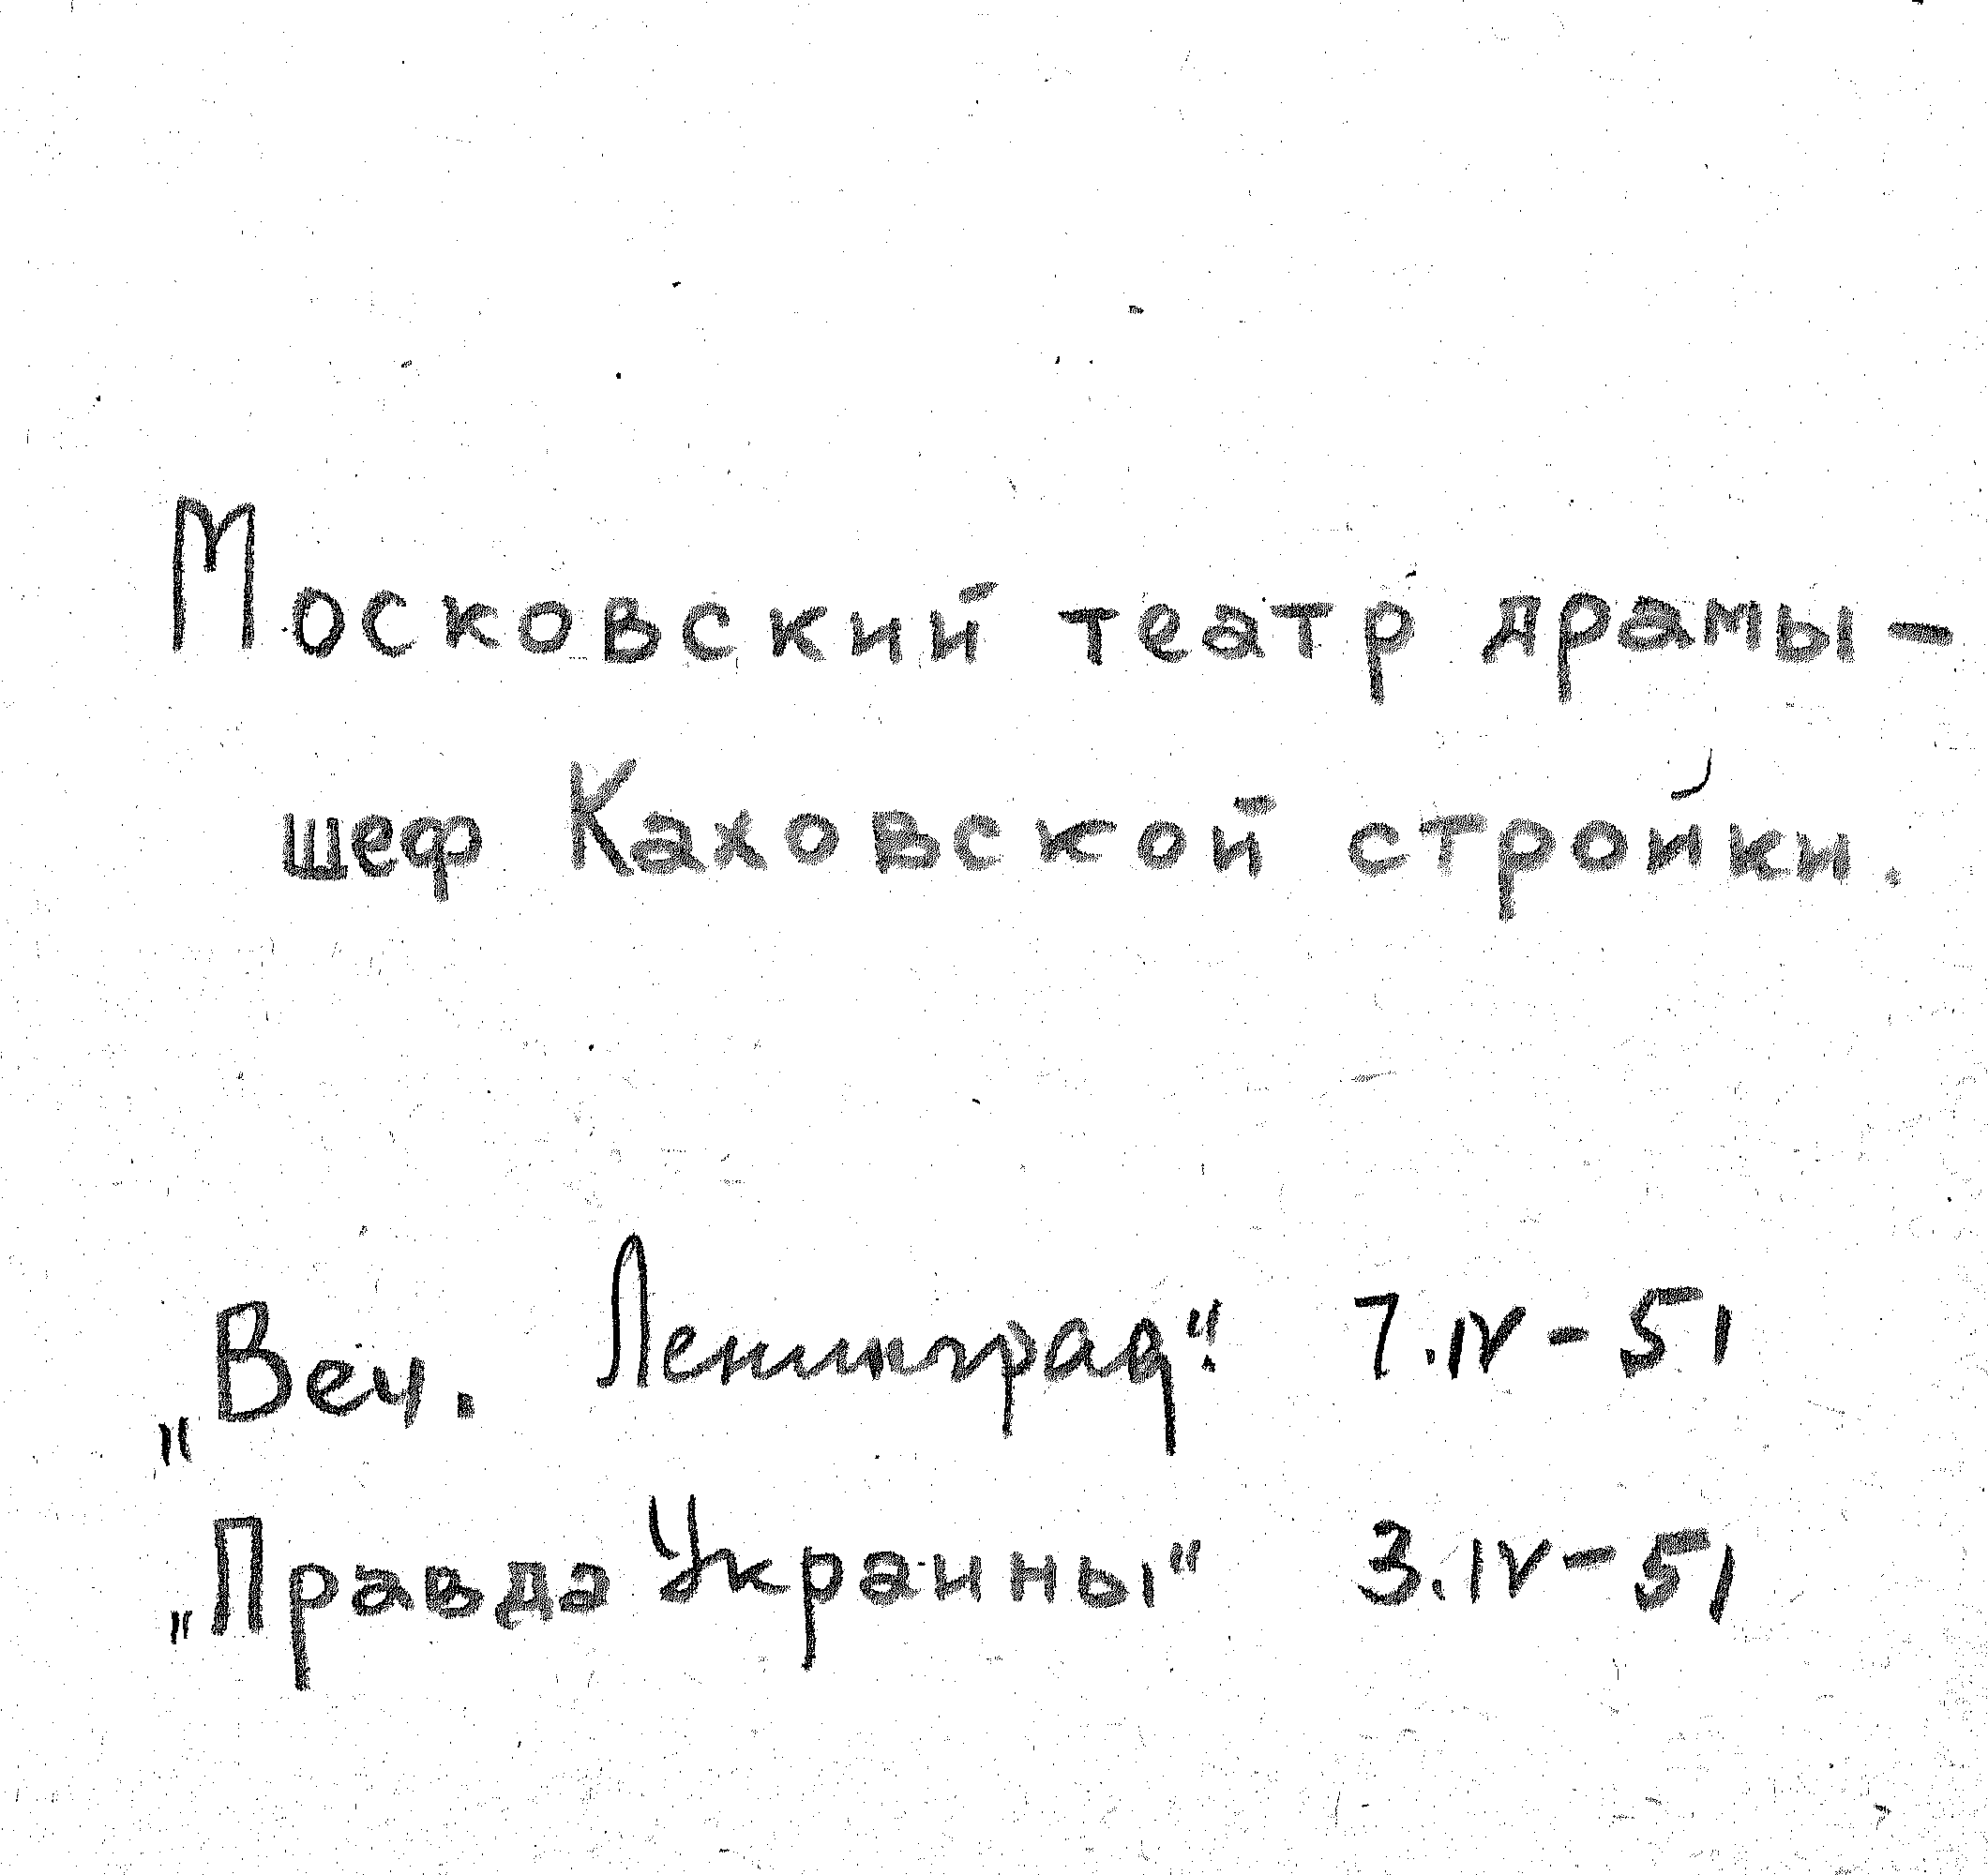 Московский театр драмы-
шеф Каховской стройки.
„Веч. Ленинград“. 7.IV-51
„Правда Украины“ 3.IV-51